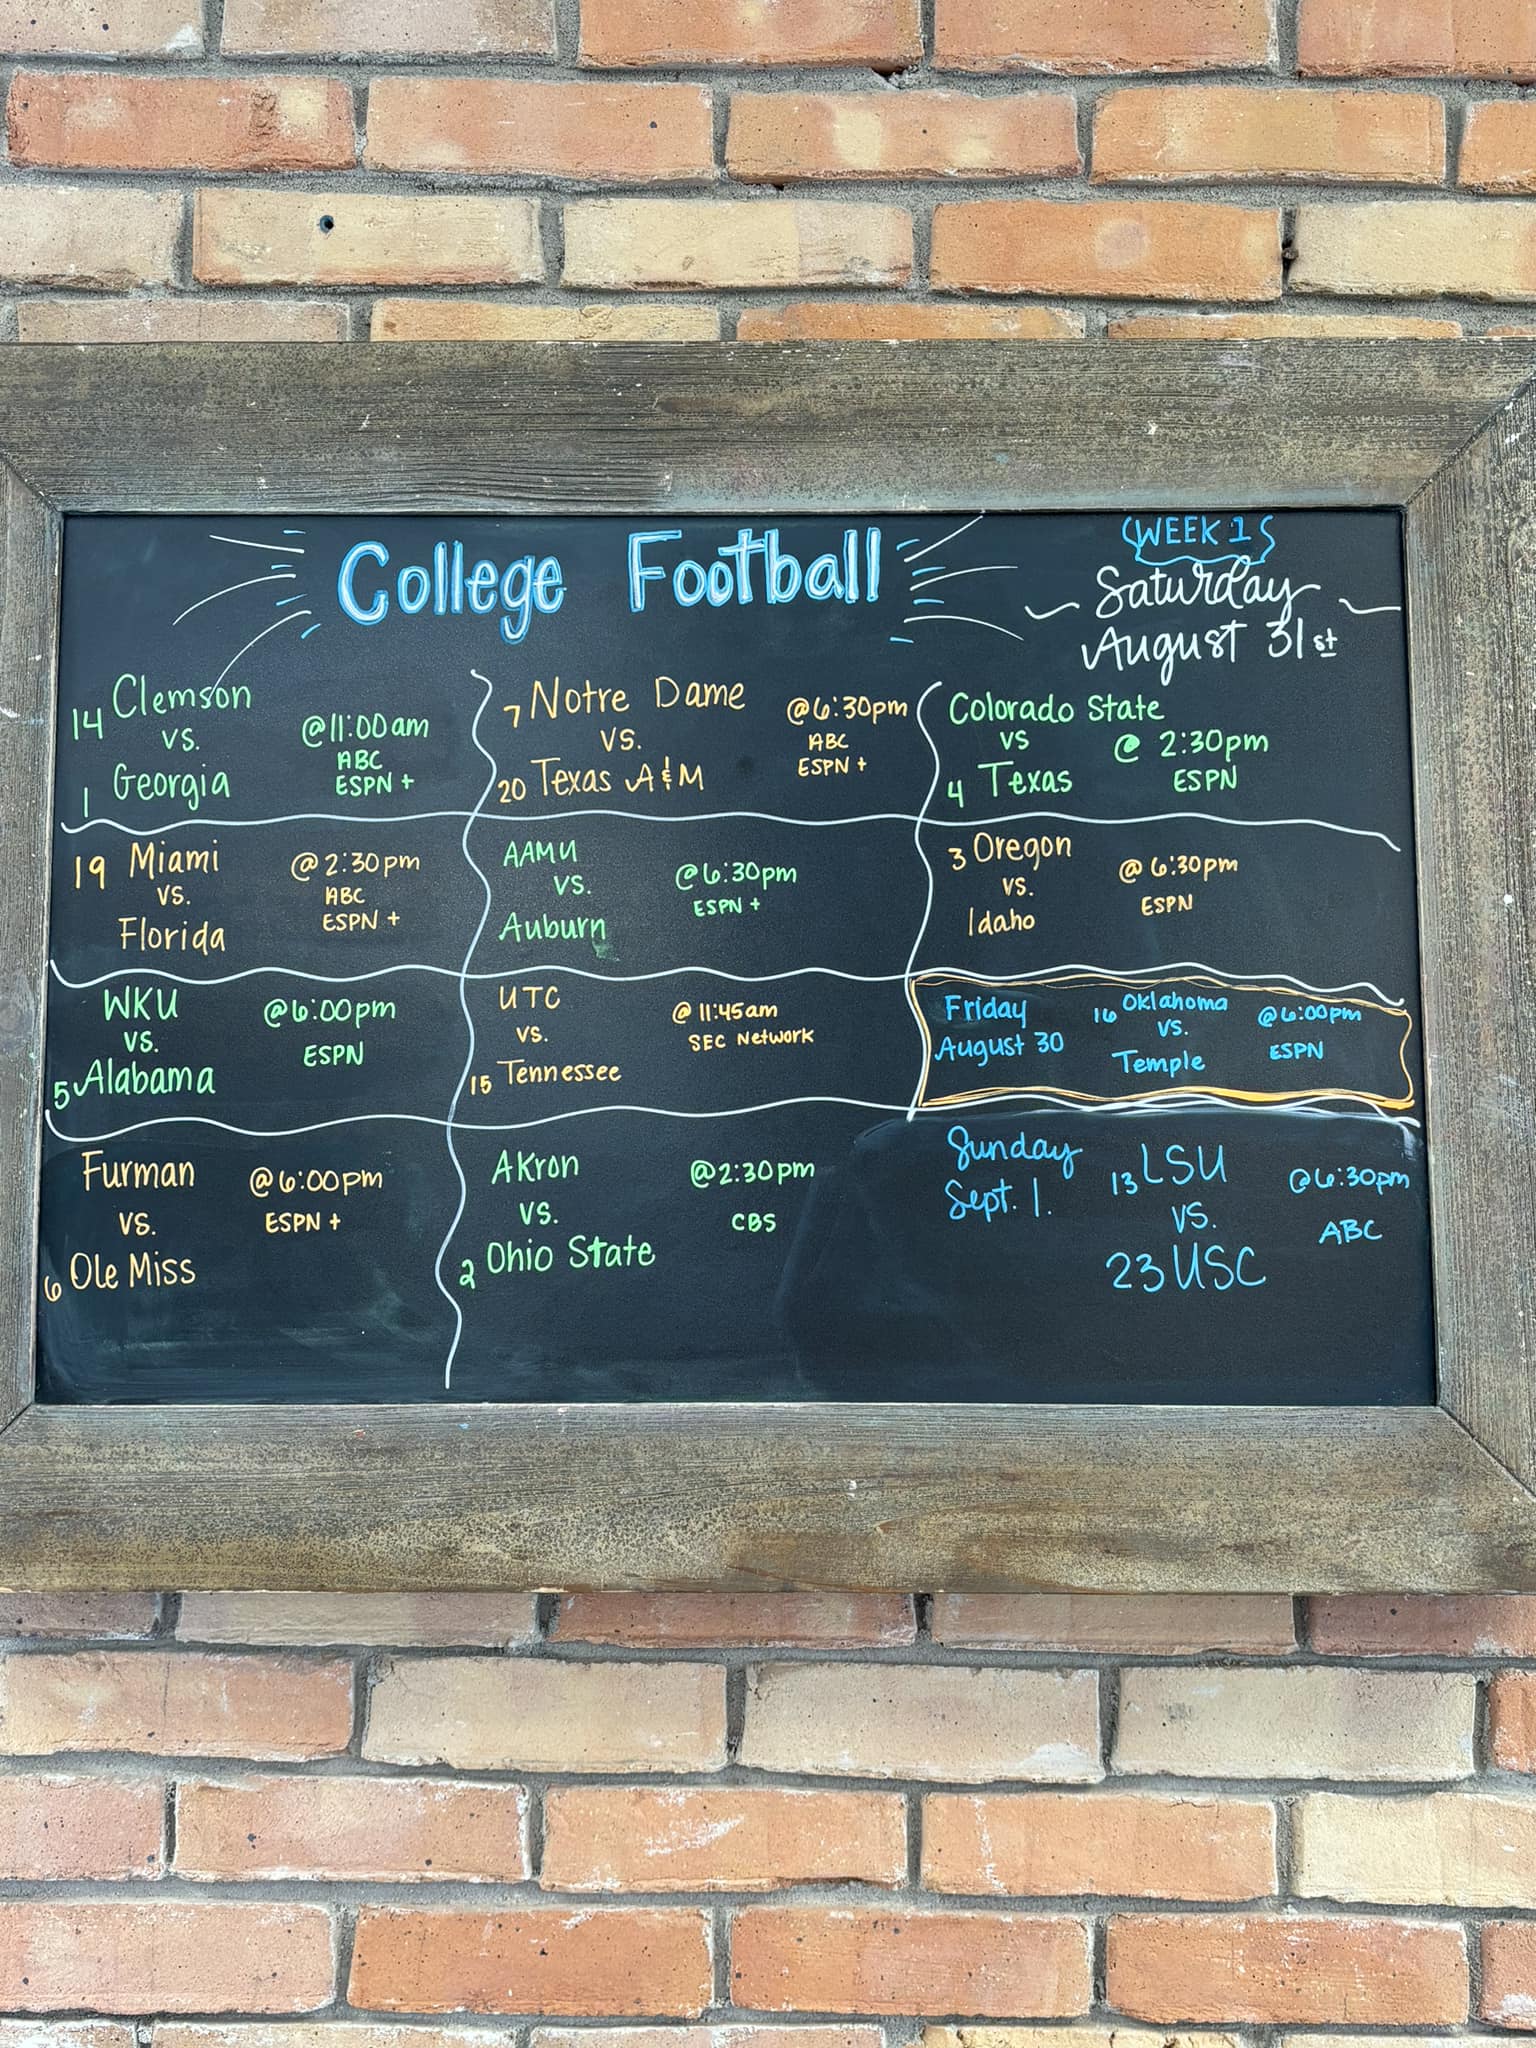 College Football
WEEK 1
Saturday
August 31st
14 Clemson
vs.
1 Georgia
@11:00am
ABC
ESPN +
7 Notre Dame
vs.
20 Texas A&M
@6:30pm
ABC
ESPN +
Colorado State
vs
4 Texas
@ 2:30pm
ESPN
19 Miami
vs.
Florida
@2:30pm
ABC
ESPN +
AAMU
vs.
Auburn
@6:30pm
ESPN +
3 Oregon
vs.
Idaho
@ 6:30pm
ESPN
WKU
vs.
5 Alabama
@6:00pm
ESPN
UTC
vs.
15 Tennessee
@ 11:45am
SEC Network
Friday
August 30
16 Oklahoma
vs.
Temple
@6:00pm
ESPN
Furman
vs.
6 Ole Miss
@6:00pm
ESPN +
Akron
vs.
2 Ohio State
@2:30pm
CBS
Sunday
Sept. 1.
13 LSU
vs.
23 USC
@6:30pm
ABC